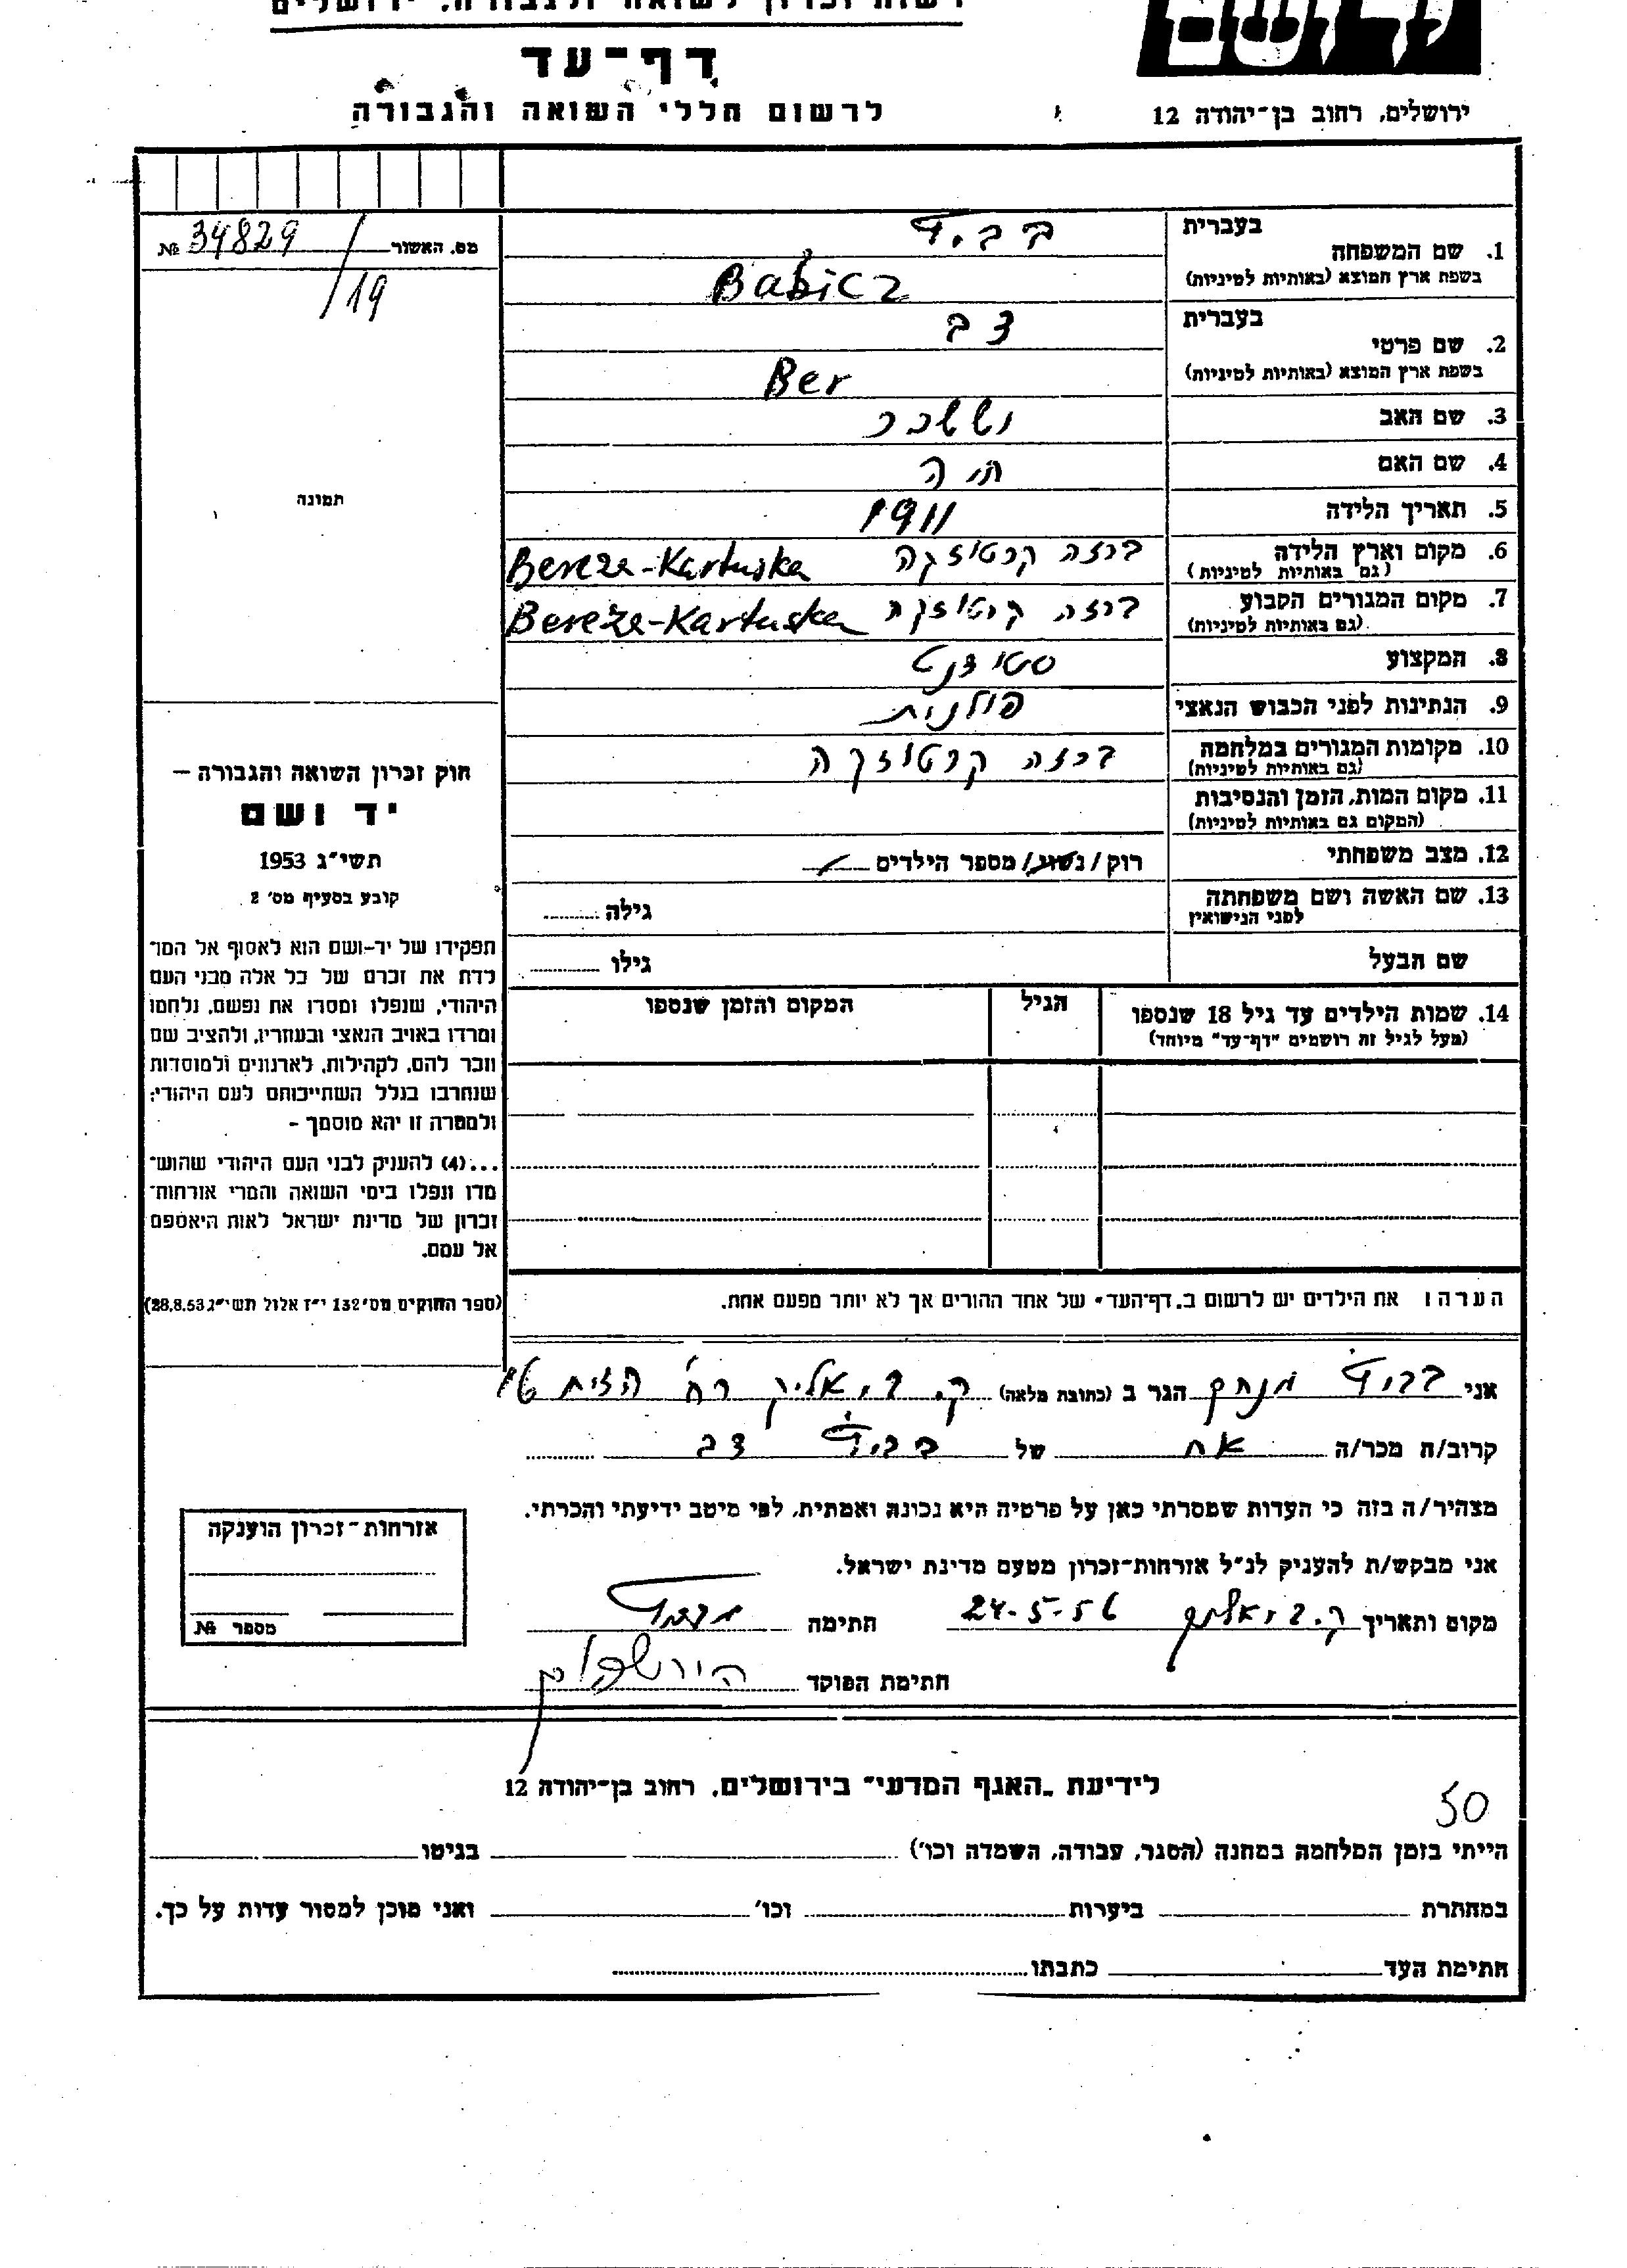 רשות זכרון לשואה ולגבורה, ירושלים
דף-עד
לרשום חללי השואה והגבורה
ירושלים, רחוב בן-יהודה 12
מס. האשור 34829 №
/19
תמונה
בעברית
1. שם המשפחה
בשפת ארץ המוצא (באותיות לטיניות)
Babicz
בעברית
2. שם פרטי
בשפת ארץ המוצא (באותיות לטיניות)
Ber
3. שם האב
4. שם האם חיה
5. תאריך הלידה 1911
6. מקום וארץ הלידה ברזה קרטוזקה Bereze-Kartuska
(גם באותיות לטיניות)
7. מקום המגורים הקבוע ברזה קרטוזקה Bereze-Kartuska
(גם באותיות לטיניות)
8. המקצוע סטודנט
9. הנתינות לפני הכבוש הנאצי פולנית
10. מקומות המגורים במלחמה ברזה קרטוזקה
(גם באותיות לטיניות)
11. מקום המות, הזמן והנסיבות
(המקום גם באותיות לטיניות)
12. מצב משפחתי רוק/נשוי/מספר הילדים
13. שם האשה ושם משפחתה גילה
לפני הנישואין
שם הבעל גילו
14. שמות הילדים עד גיל 18 שנספו הגיל המקום והזמן שנספו
(מעל לגיל זה רושמים "דף-עד" מיוחד)
חוק זכרון השואה והגבורה –
יד ושם
תשי"ג 1953
קובע בסעיף מס' 2
תפקידו של יד-ושם הוא לאסוף אל המו־
לדת את זכרם של כל אלה מבני העם
היהודי, שנפלו ומסרו את נפשם, נלחמו
ומרדו באויב הנאצי ובעוזריו, ולהציב שם
וזכר להם, לקהילות, לארגונים ולמוסדות
שנחרבו בגלל השתייכותם לעם היהודי;
ולמטרה זו יהא מוסמך –
...(4) להעניק לבני העם היהודי שהוש־
מדו ונפלו בימי השואה והמרי אזרחות־
זכרון של מדינת ישראל לאות היאספם
אל עמם.
(ספר החוקים מס' 132 י"ז אלול תשי"ג 28.8.53)
הערה: את הילדים יש לרשום ב"דף-העד" של אחד ההורים אך לא יותר מפעם אחת.
אני מנחם הגר ב (כתובת מלאה) ק. ביאליק רח' הזית 16
קרוב/ה מכר/ה אח של
מצהיר/ה בזה כי העדות שמסרתי כאן על פרטיה היא נכונה ואמתית, לפי מיטב ידיעתי והכרתי.
אני מבקש/ת להעניק לנ"ל אזרחות-זכרון מטעם מדינת ישראל.
מקום ותאריך ק. ביאליק 24-5-56 חתימה
חתימת הפוקד
אזרחות-זכרון הוענקה
מספר №
לידיעת "האגף המדעי" בירושלים, רחוב בן-יהודה 12
50
הייתי בזמן המלחמה במחנה (הסגר, עבודה, השמדה וכו') בגיטו
במחתרת ביערות וכו' ואני מוכן למסור עדות על כך.
חתימת העד כתבתו